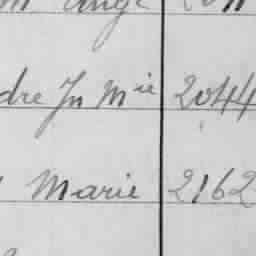 dre Jn Mie 2044
Marie 2162